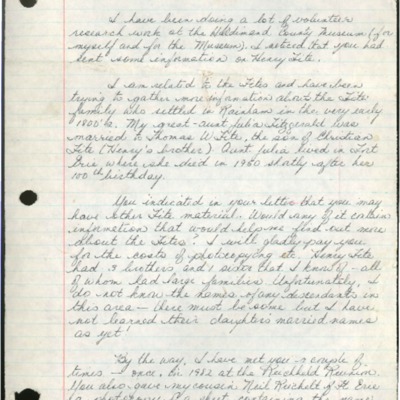 I have been doing a lot of volunteer
research work at the Haldimand County Museum (for
myself and for the Museum). I noticed that you had
sent some information on Henry Fite.
I am related to the Fites and have been
trying to gather more information about the Fite
family who settled in Rainham in the very early
1800's. My great-aunt Julia Fitzgerald was
married to Thomas W. Fite, the son of Christian
Fite (Henry's brother). Aunt Julia lived in Fort
Erie where she died in 1980 shortly after her
100th birthday.
You indicated in your letter that you may
have other Fite material. Would any of it contain
information that would help me find out more
about the Fites? I will gladly pay you
for the costs of photocopying etc. Henry Fite
had 3 brothers and 1 sister that I know of - all
of whom had large families. Unfortunately, I
do not know the names of any descendants in
this area - there must be some but I have
not learned their daughters married names
as yet!
By the way, I have met you a couple of
times - once, in 1982 at the Reichheld Reunion.
You also gave my cousin Neil Reichelt of Ft. Erie
a photocopy of a sheet containing the name